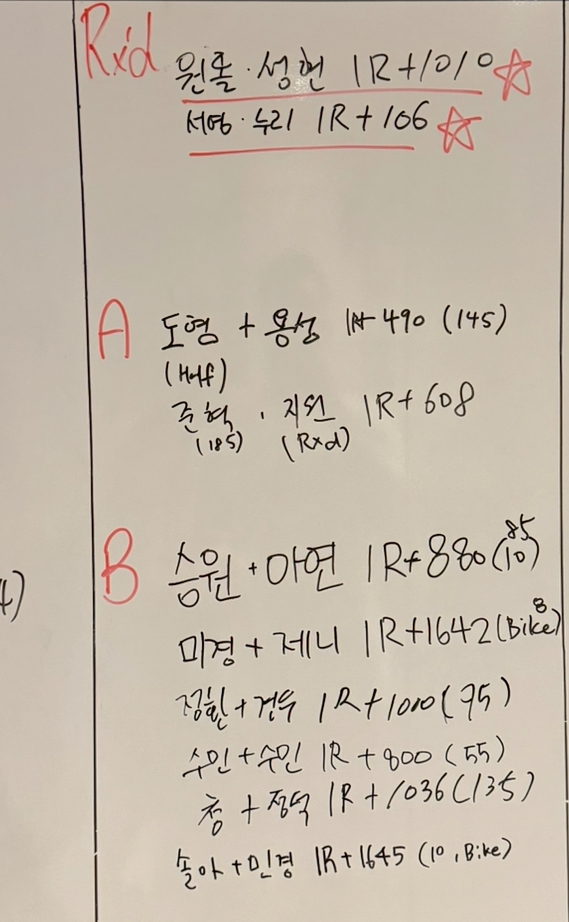 Rx'd
원돌·성현 1R+1010
서영·누리 1R+106
A
도형 + 용성 1R+490 (145)
(Half)
준혁 · 지원 1R+608
(185) (Rxd)
B
승원+아연 1R+880(10)
85
미경+제니 1R+1642(Bike)
8
정환+건우 1R+1000(75)
수민+수민 1R+800(55)
청+정덕 1R+1036(135)
솔아+민경 1R+1645 (10, Bike)